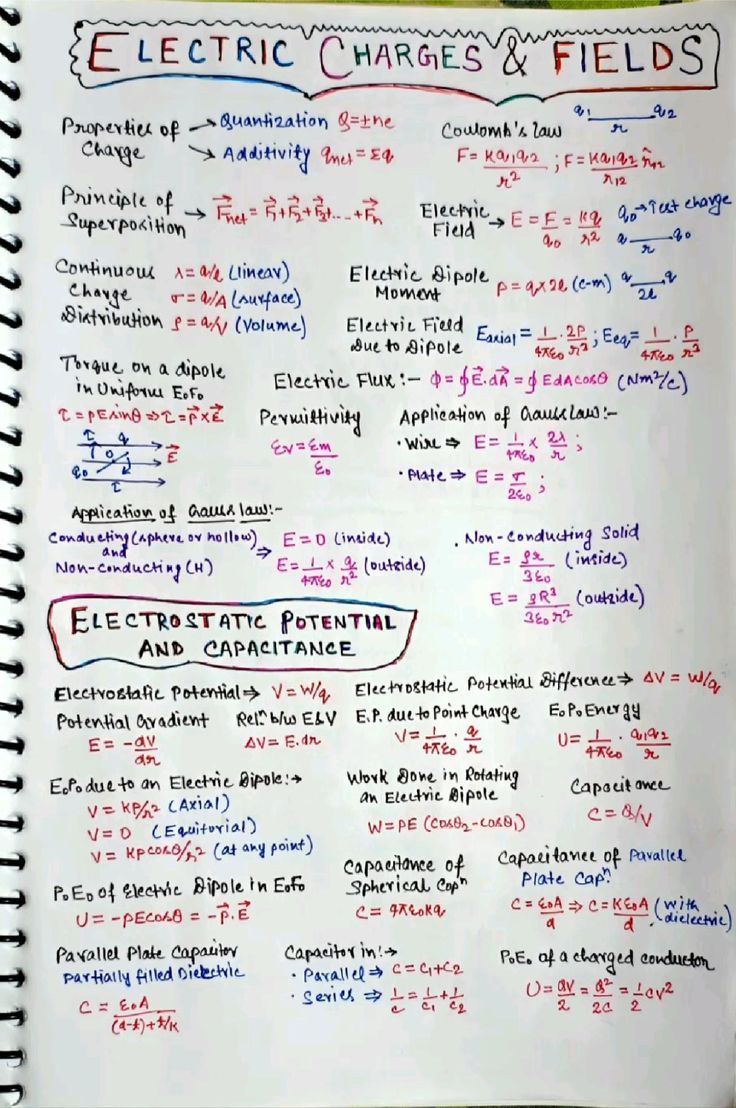 ELECTRIC CHARGES & FIELDS
Properties of Charge → Quantization Q=±ne
→ Additivity qnet = Σq
Coulomb's law q1 q2 r
F = Kq1q2/r² ; F = Kq1q2/r12 r̂12
Principle of Superposition → F⃗net = F⃗1+F⃗2+F⃗3+....+F⃗n
Electric Field → E = F/q0 = kq/r² q0→Test charge
q q0 r
Continuous Charge Distribution λ = q/l (linear)
σ = q/A (surface)
ρ = q/V (Volume)
Electric Dipole Moment P = q×2l (C-m) q q 2l
Electric Field Due to Dipole Eaxial = 1/4πε0 · 2P/r³ ; Eeq = 1/4πε0 · P/r³
Torque on a dipole in Uniform E.F.
τ = PE sinθ ⇒ τ = P⃗×E⃗
τ q
θ E⃗
q0
τ
Electric Flux :- Φ = ∮E⃗.dA⃗ = ∮EdAcosθ (Nm²/C)
Permittivity
εr = εm/ε0
Application of Gauss law:-
• Wire ⇒ E = 1/4πε0 × 2λ/r ;
• Plate ⇒ E = σ/2ε0 ;
Application of Gauss law:-
Conducting (sphere or hollow) and Non-Conducting (H) ⇒ E = 0 (inside)
E = 1/4πε0 × q/r² (outside)
• Non-Conducting Solid
E = ρr/3ε0 (inside)
E = ρR³/3ε0r² (outside)
ELECTROSTATIC POTENTIAL
AND CAPACITANCE
Electrostatic Potential ⇒ V = W/q
Electrostatic Potential Difference ⇒ ΔV = W/q
Potential Gradient
E = -dV/dr
Relⁿ b/w E&V
ΔV = E.dr
E.P. due to Point Charge
V = 1/4πε0 · q/r
E.P. Energy
U = 1/4πε0 · q1q2/r
E.P. due to an Electric Dipole :→
V = KP/r² (Axial)
V = 0 (Equitorial)
V = KPcosθ/r² (at any point)
Work Done in Rotating
an Electric Dipole
W = PE (Cosθ2 - cosθ1)
Capacitance
C = Q/V
P.E. of Electric Dipole in E.F.
U = -PEcosθ = -P⃗.E⃗
Capacitance of
Spherical Capⁿ
C = 4πε0Ka
Capacitance of Parallel
Plate Capⁿ.
C = ε0A/d ⇒ C = Kε0A/d (with dielectric)
Parallel Plate Capacitor
Partially filled Dielectric
C = ε0A/(d-t)+t/K
Capacitor in :→
• Parallel ⇒ C = C1+C2
• Series ⇒ 1/C = 1/C1 + 1/C2
P.E. of a charged conductor
U = QV/2 = Q²/2C = 1/2 CV²